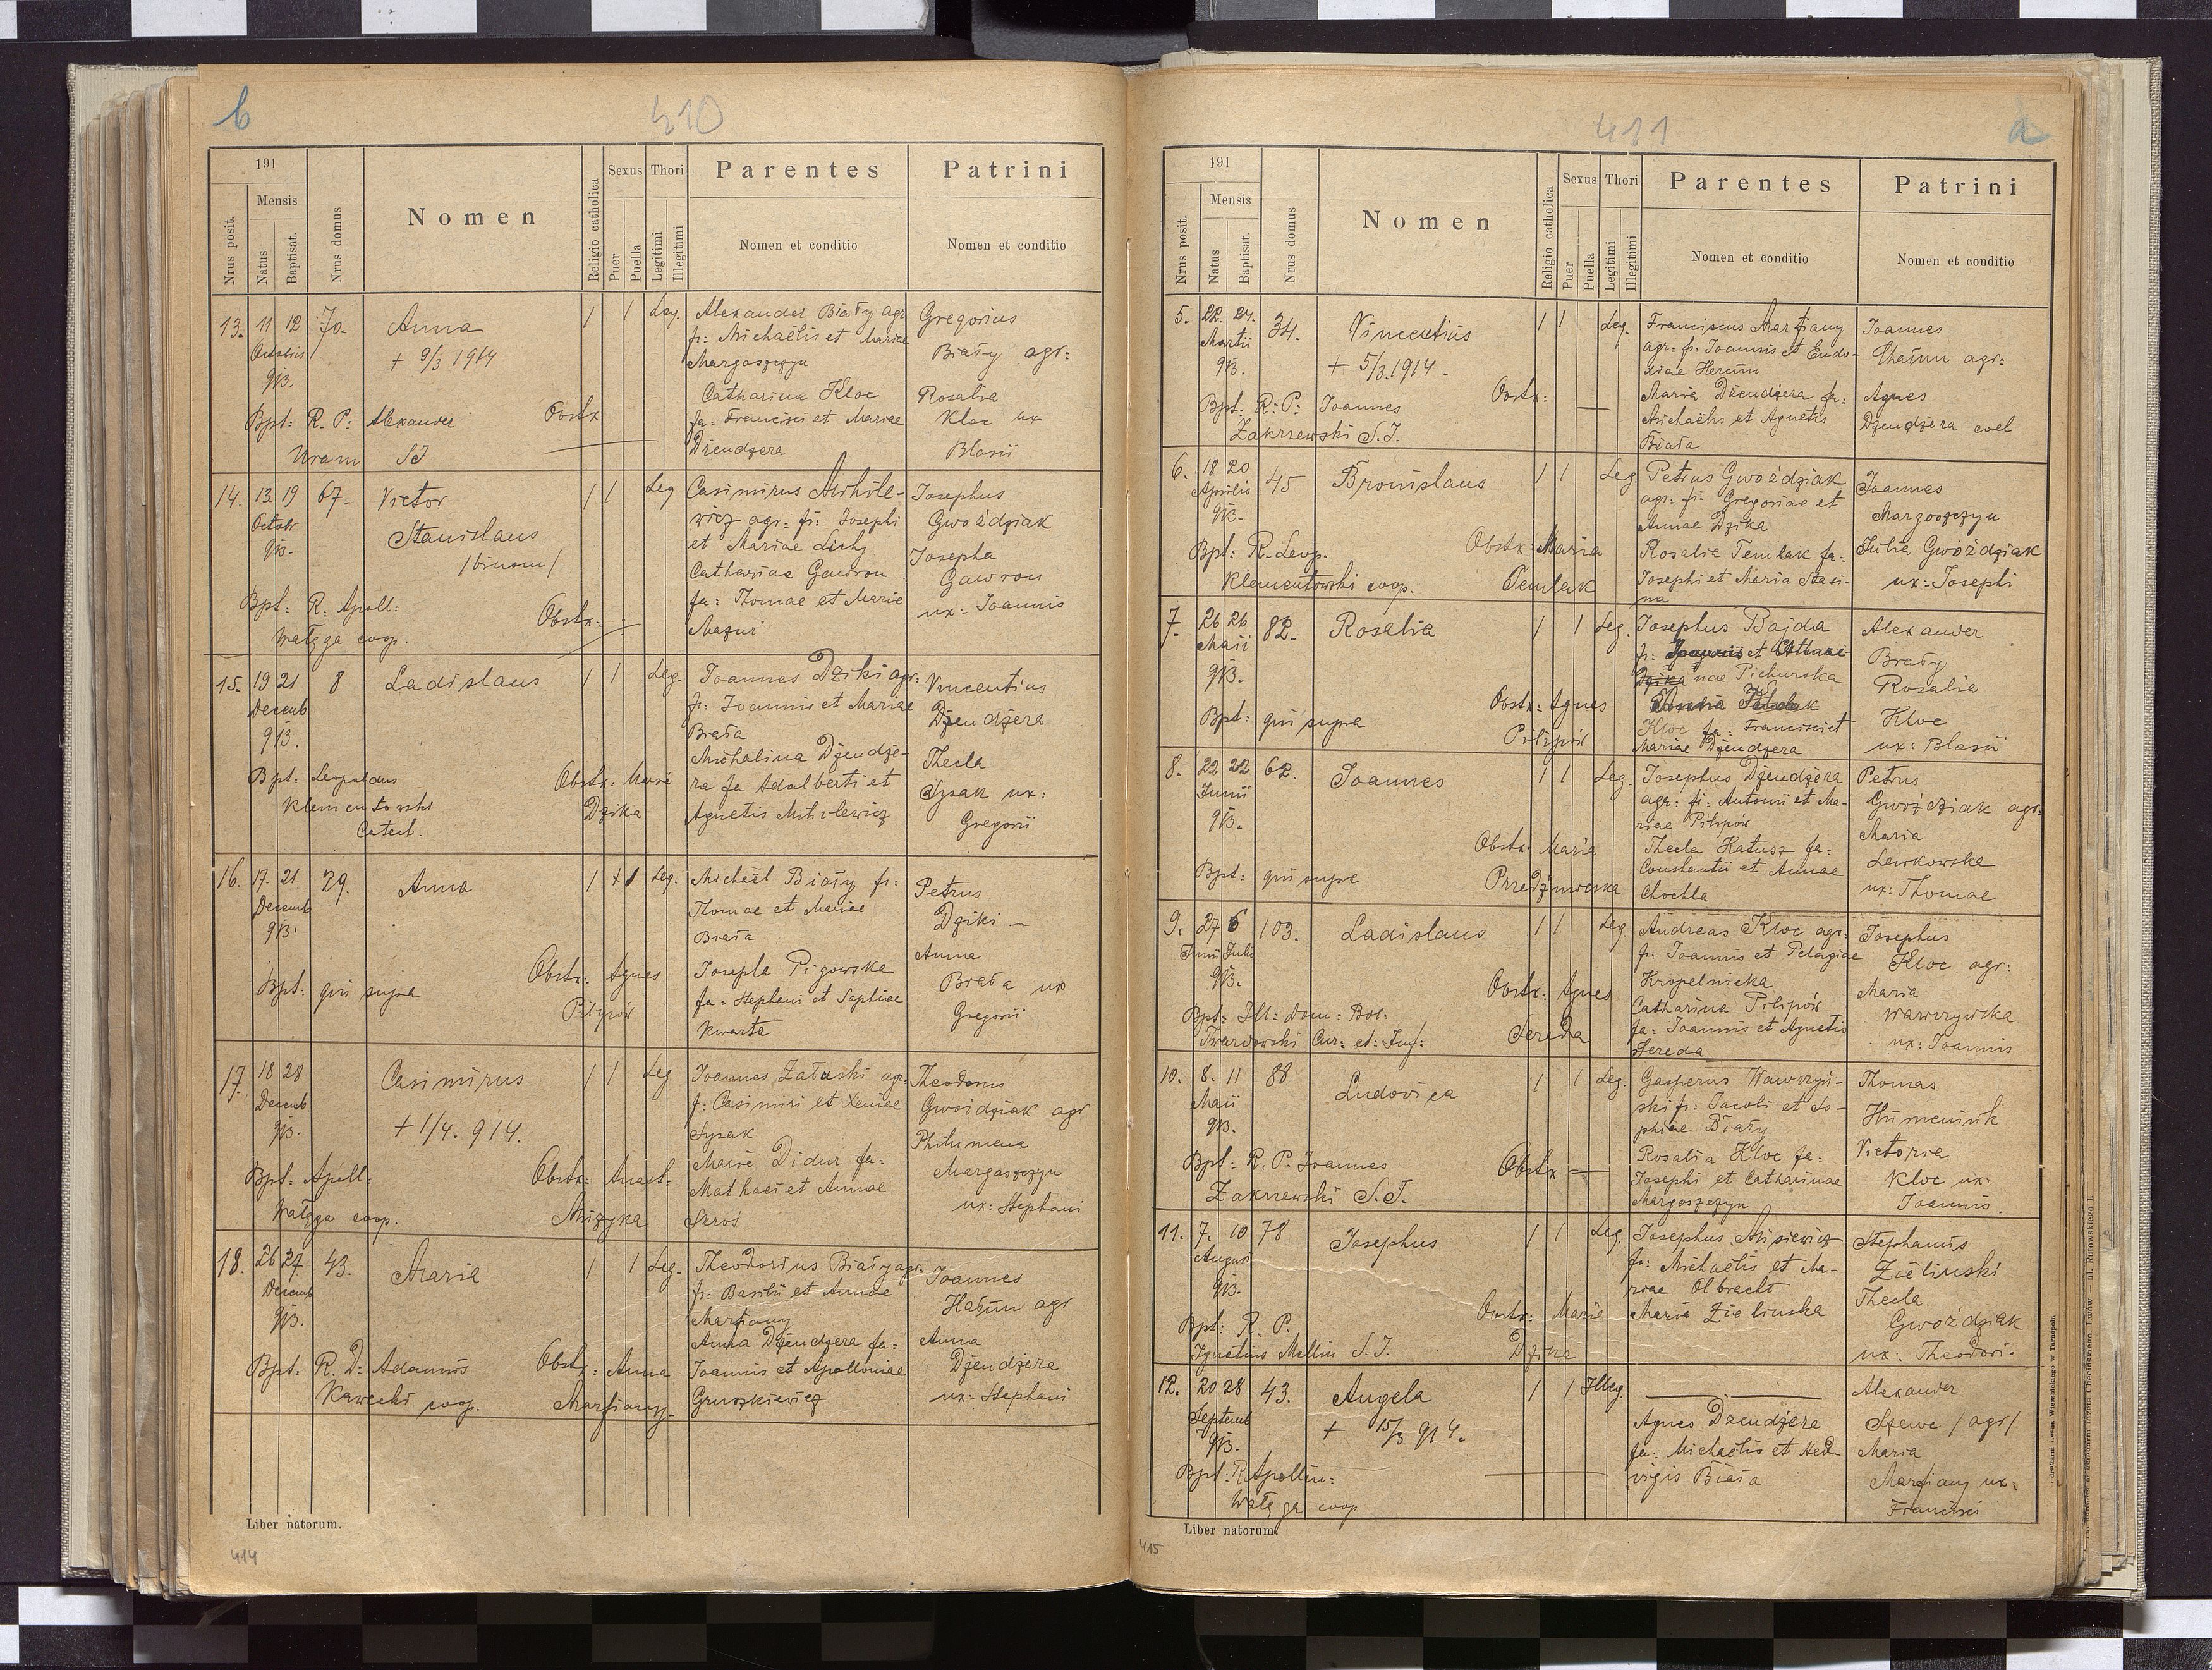 b
410
191
Mensis
Nrus posit.
Natus
Baptisat.
Nrus domus
Nomen
Religio catholica
Sexus
Puer
Puella
Thori
Legitimi
Illegitimi
Parentes
Nomen et conditio
Patrini
Nomen et conditio
13. 11 12 70. Anna 1 1 Leg.
Octobris
+ 9/3 1914
913.
Bpt: R. P. Alexander Obstx
Uram SJ
Alexander Biały agr
fi: Michaëlis et Mariae
Margoszczyn
Catharina Kloc
fa: Francisci et Mariae
Dżendżera
Gregorius
Biały agr:
Rosalia
Kloc ux
Blasii
14. 13 19 67- Victor 1 1 Leg
Octobr
Stanislaus
913.
/binom/
Bpt: R. Apoll: Obstx.
Wałęga coop.
Casimirus Michile-
wicz agr: fi: Josephi
et Mariae Lichy
Catharina Gawron
fa: Thomae et Mariae
Mazur
Josephus
Gwoździak
Josepha
Gawron
ux: Joannis
15. 19 21 8 Ladislaus 1 1 Leg.
Decemb
913.
Bpt: Leopoldus Obstx: Maria
Klementowski Dzika
Catect.
Joannes Dziki agr:
fi: Joannis et Mariae
Biała
Michalina Dżendże-
ra fa Adalberti et
Agnetis Michilewicz
Vincentius
Dżendżera
Thecla
Sysak ux:
Gregorii
16. 17. 21 29. Anna 1 1 Leg.
Decemb
913.
Obstx: Agnes
Bpt: qui supra
Pilipów
Michaël Biały fi:
Thomae et Mariae
Biała
Josepha Pigowska
fa: Stephani et Sophiae
Kwarta
Petrus
Dziki —
Anna
Biała ux
Gregorii
17. 18 28 Casimirus 1 1 Leg
Decemb
913.
+ 1/4. 914.
Bpt: Apoll: Obstx: Anast:
Wałęga coop.
Joannes Załuski agr:
f: Casimiri et Xeniae
Sysak
Maria Didur fa:
Mathaei et Annae
Seroś
Theodorus
Gwoździak agr
Philumena
Margoszczyn
ux: Stephani
18. 26 27. 43. Maria 1 1 Leg.
Decemb
913.
Bpt. R. D: Adamus Obstx: Anna
Kawecki coop. Marfiany
Theodorius Biały agr.
fi: Basilii et Annae
Marfiany
Anna Dżendżera fa:
Joannis et Apolloniae
Gruszkiewicz
Joannes
Hałun agr
Anna
Dżendżera
ux: Stephani
Liber natorum.
414
411
a
191
Mensis
Nrus posit.
Natus
Baptisat.
Nrus domus
Nomen
Religio catholica
Sexus
Puer
Puella
Thori
Legitimi
Illegitimi
Parentes
Nomen et conditio
Patrini
Nomen et conditio
5. 22. 24. 34. Vincentius 1 1 Leg.
Martii
913.
+ 5/3.1914.
Bpt: R: P: Joannes Obstx:
Zakrzewski S.J.
Franciscus Marfiany
agr: fi: Joannis et Eudo-
xiae
Maria Dżendżera fa:
Michaëlis et Agnetis
Biała
Joannes
Chałun agr:
Agnes
Dżendżera coel
6. 18 20 45 Bronislaus 1 1 Leg
Aprilis
913.
Bpt: R. Leop. Obstx: Maria
Klementowski coop. Temlak
Petrus Gwoździak
agr: fi: Gregoriae et
Annae Dzika
Rosalia Temlak fa:
Josephi et Maria Stasi-
na
Joannes
Margoszczyn
Julia Gwoździak
ux: Josephi
7. 26 26 82. Rosalia 1 1 Leg.
Maii
913.
Obstx: Agnes
Bpt: qui supra
Pilipów
Josephus Bajda
fi: et Athana-
nae Pichurska
Kloc fa: Francisci et
Mariae Dżendżera
Alexander
Biały
Rosalia
Kloc
ux: Blasii
8. 22 22 62. Joannes 1 1 Leg.
Junii
913.
Obstx: Maria
Bpt: qui supra
Josephus Dżendżera
agr: fi: Antonii et Ma-
riae Pilipów
Thecla Hatusz fa:
Constantii et Annae
Chochla
Petrus
Gwoździak agr:
Maria
Lewkowska
ux: Thomae
9. 27 6 103. Ladislaus 1 1 Leg.
Junii Julii
913.
Obstx: Agnes
Bpt: Ill: dom: Bol:
Twardowski Cur: et: Inf: Sereda
Andreas Kloc agr:
fi: Joannis et Pelagiae
Kropelnicka
Catharina Pilipów
fa: Joannis et Agnetis
Sereda
Josephus
Kloc agr:
Maria
Wawrzynska
ux: Joannis
10. 8. 11 88 Ludovica 1 1 Leg.
Maii
913.
Bpt: R. P. Joannes Obstx —
Zakrzewski S.J.
Gasperus Wawrzyń-
ski fi: Jacobi et So-
phiae Biały
Rosalia Kloc fa:
Josephi et Catharinae
Margoszczyn
Thomas
Humeniuk
Victoria
Kloc ux:
Joannis.
11. 7. 10 78 Josephus 1 1 Leg.
Augusti
913.
Bpt: R. P. Obstx: Maria
Ignatius Mellin S.J. Dzika
Josephus Misiewicz
fi: Michaëlis et Ma-
riae Olbracht
Maria Zielinska
Stephanus
Zielinski
Thecla
Gwoździak
ux: Theodori.
12. 20 28 43. Angela 1 1 Illeg.
Septemb
913.
+ 15/3 914.
Bpt: R Apollin:
Wałęga coop
Agnes Dżendżera
fa: Michaëlis et Hed-
vigis Biała
Alexander
Szewc /agr/
Maria
Marfiany ux:
Francisci
Liber natorum
415